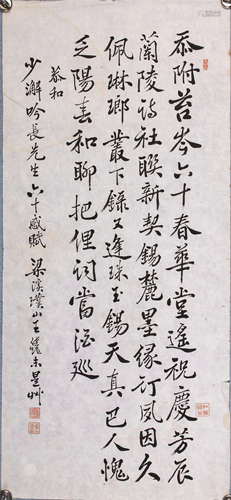 忝附苔岑六十春華堂遙祝慶芳辰
蘭陵詩社聯新契錫麓墨緣訂夙因久
佩琳瑯叢下錄又逢珠玉錫天真巴人愧
乏陽春和聊把俚詞當酒巡
恭和
少瀣吟長先生六十感賦
梁溪璞山王 未是艸